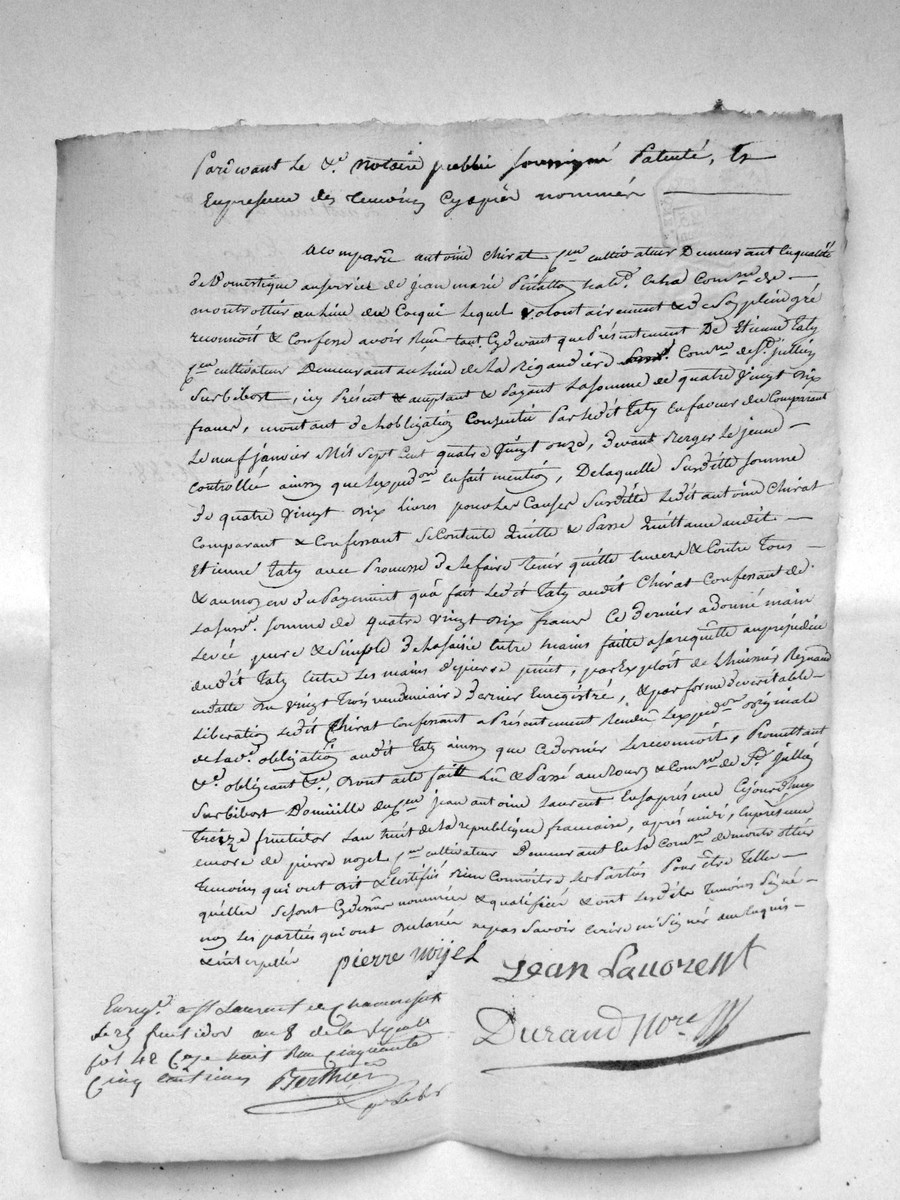 Pardevant le &.e notaire public soussigné Patenté, &
Enpresence des temoins cyaprès nommés
a Comparu antoine Chirat C.en cultivateur Demeurant Enqualité
de Domestique auservice de jean marie
montrottier aulieu du Coqui lequel volontairement & de Son plein gré
reconnoit & Confesse avoir Reçu tant Cydevant que Présentement De Etienne Taty
C.en cultivateur Demeurant aulieu de La Rigaudiere Comm.ne de S.t jullien
Surbibost, icy Présent & acceptant & Payant La Somme de quatre Vingt dix
francs, montant de L'obligation Consentie Par ledit Taty En faveur du Comparant
Le neuf janvier Mil Sept Cent quatre Vingt onze, devant Berger le jeune
Controllée ainsy que Lexped.on enfait mention, De laquelle Susditte Somme
de quatre Vingt dix livres pour les Causes Susdittes Ledit antoine Chirat
Comparant & Confessant Se Contente quitte & Passe quittance audit
Etienne Taty avec Promesse de le faire tenir quitte Envers & Contre Tous
& au moyen du Payement qu'a fait Ledit Taty audit Chirat Confessant de
La Susd.e Somme de quatre Vingt dix francs Ce dernier a donné main
Levée pure & Simple de la Saisie Entre mains faitte asa requette au prejudice
dudit Taty Entre Les mains de pierre, par Exploit de L'huissier Reynaud
endatte du Vingt Trois vendemiaire dernier Enregistré, & par forme de veritable
Liberation Ledit Chirat Confessant a Présentement Rendu Lexped.on originale
de Lad.e obligation audit Taty ainsy que Ce dernier Le reconnoit, Promettant
&.e obligeant &.e, dont acte fait Lu & Passé au Comm.ne de S.t Jullien
Surbibost Domicille du C.en jean antoine Laurent En sa présence Cejourdhuy
Treize fructidor Lan huit de la republique francaise, après midi, En présence
encore de pierre noyel C.en cultivateur Demeurant En la Comm.ne de montrottier
Temoins qui ont dit & Certifiés bien Connoitre Les Parties Pour Être Telles
quelles Se Sont Cydessus nommées & qualifiées & ont Lesdits Temoins Signé
non Les parties qui ont declarées nepas Savoir Ecrire ni Signer au Requis
& interpellées pierre noyel Jean Lauorent
Durand No.re
Enreg.é a S.t Laurent de Chamousset
Le 23 fructidor an 8 de la Repub
fol 42 C.se huit Reçu Cinquante
Cinq Centimes Berthier